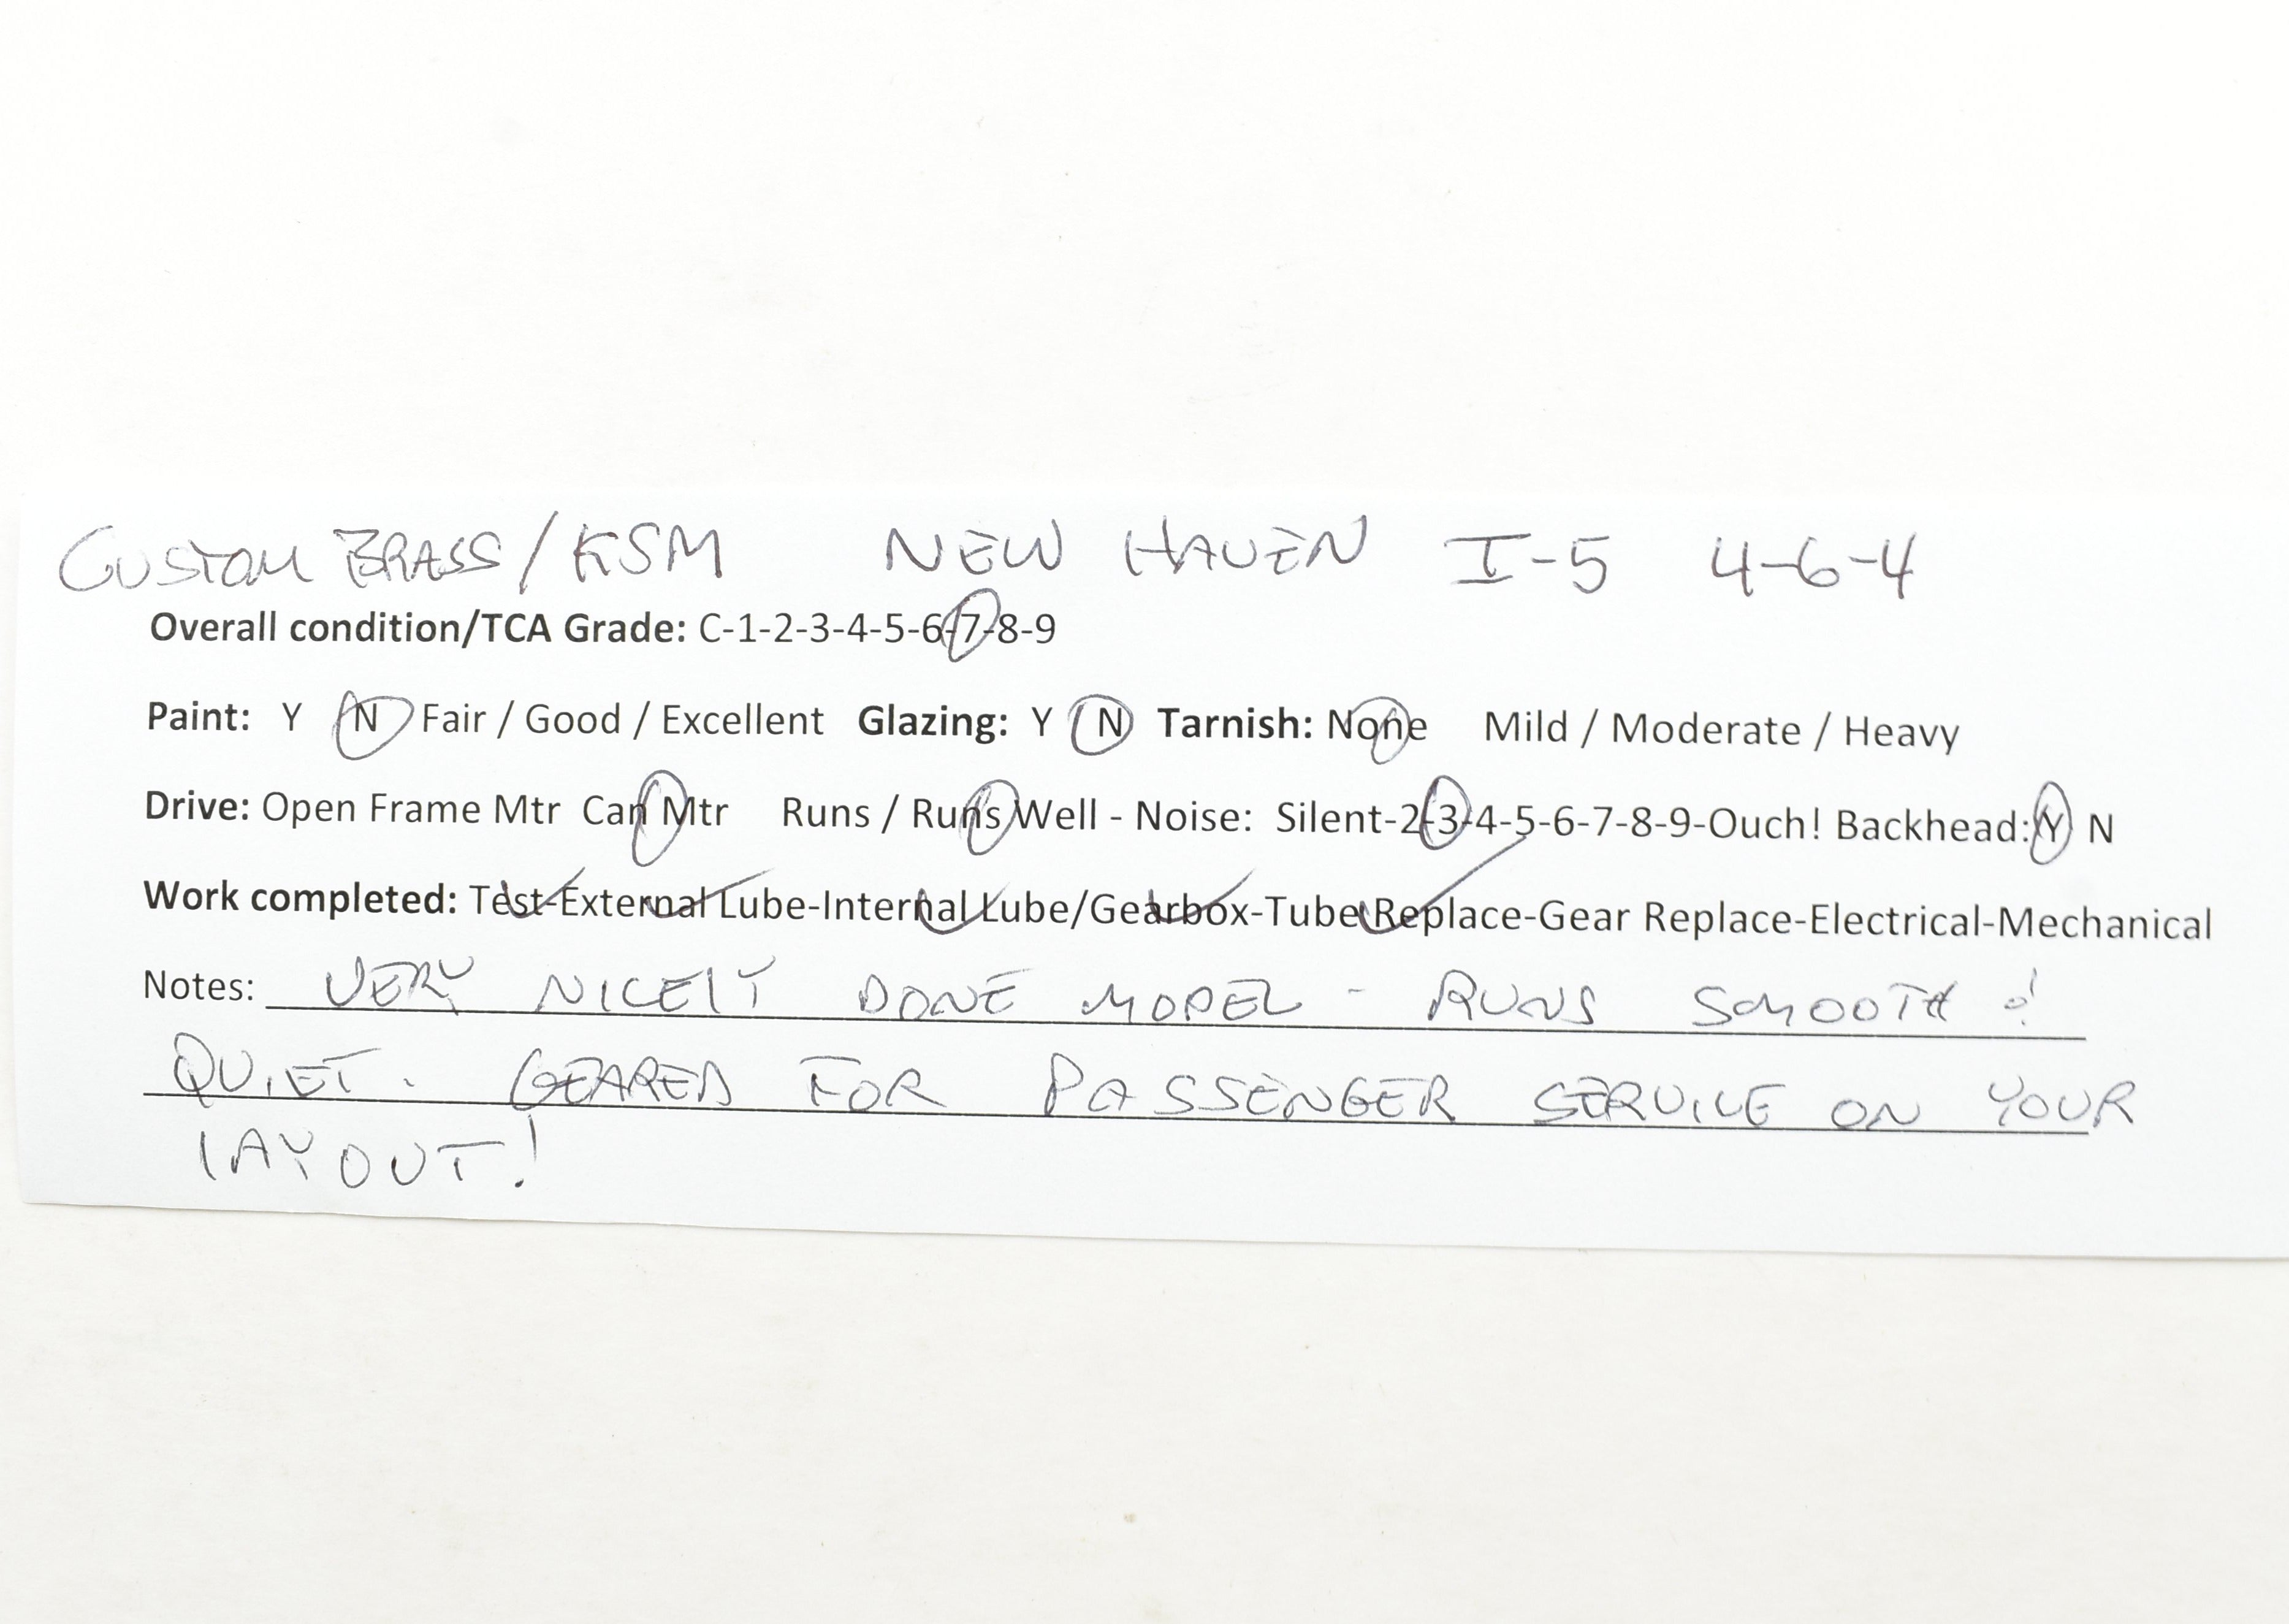 CUSTOM BRASS/KSM NEW HAVEN I-5 4-6-4
Overall condition/TCA Grade: C-1-2-3-4-5-6-7-8-9
Paint: Y N Fair / Good / Excellent Glazing: Y N Tarnish: None Mild / Moderate / Heavy
Drive: Open Frame Mtr Can Mtr Runs / Runs Well - Noise: Silent-2-3-4-5-6-7-8-9-Ouch! Backhead: Y N
Work completed: Test-External Lube-Internal Lube/Gearbox-Tube Replace-Gear Replace-Electrical-Mechanical
Notes: VERY NICELY DONE MODEL - RUNS SMOOTH &
QUIET. GEARED FOR PASSENGER SERVICE ON YOUR
LAYOUT!